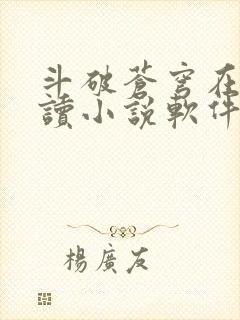 斗破蒼穹在
讀小說軟件
楊廣友